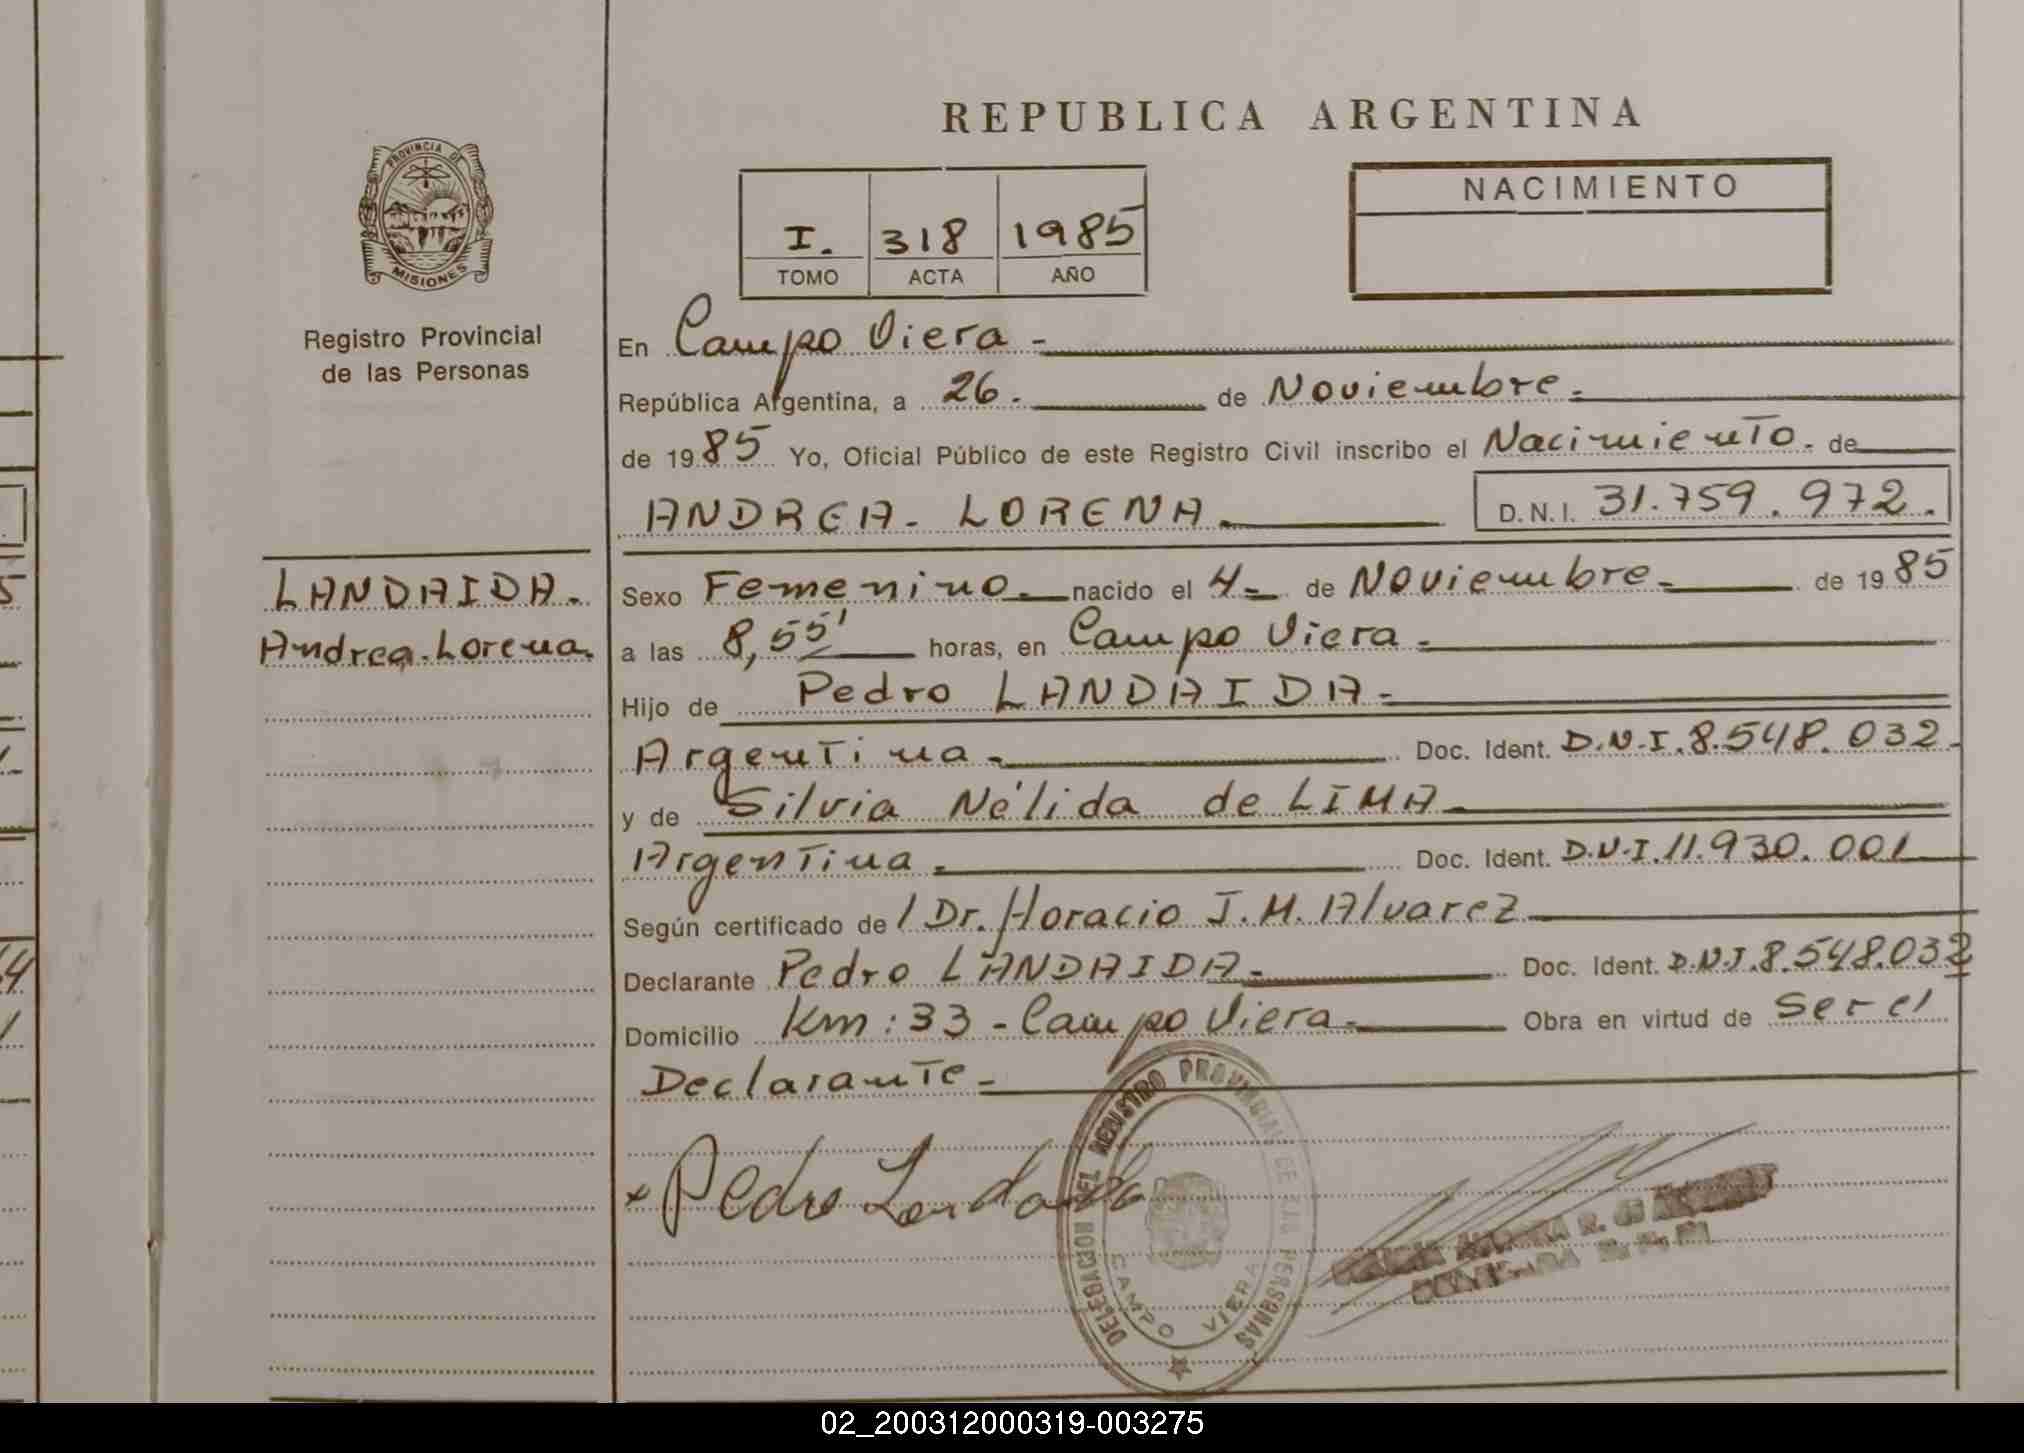 REPUBLICA ARGENTINA
PROVINCIA DE
MISIONES
Registro Provincial
de las Personas
I. 318 1985
TOMO ACTA AÑO
NACIMIENTO
En Campo Viera -
República Argentina, a 26. de Noviembre.
de 1985 Yo, Oficial Público de este Registro Civil inscribo el Nacimiento. de
ANDREA. LORENA. D.N.I. 31.759.972.
LANDAIDA.
Andrea.Lorena.
Sexo Femenino. nacido el 4- de Noviembre. de 1985
a las 8,55' horas, en Campo Viera.
Hijo de Pedro LANDAIDA.
Argentina. Doc. Ident. D.N.I. 8.548.032.
y de Silvia Nélida de LIMA.
Argentina. Doc. Ident. D.N.I. 11.930.001
Según certificado de / Dr. Horacio J. M. Alvarez
Declarante Pedro LANDAIDA. Doc. Ident. D.N.I. 8.548.032
Domicilio Km: 33 - Campo Viera. Obra en virtud de Ser el
Declarante -
x Pedro
DELEGACION DEL REGISTRO PROVINCIAL DE LAS PERSONAS
CAMPO VIERA
02_200312000319-003275